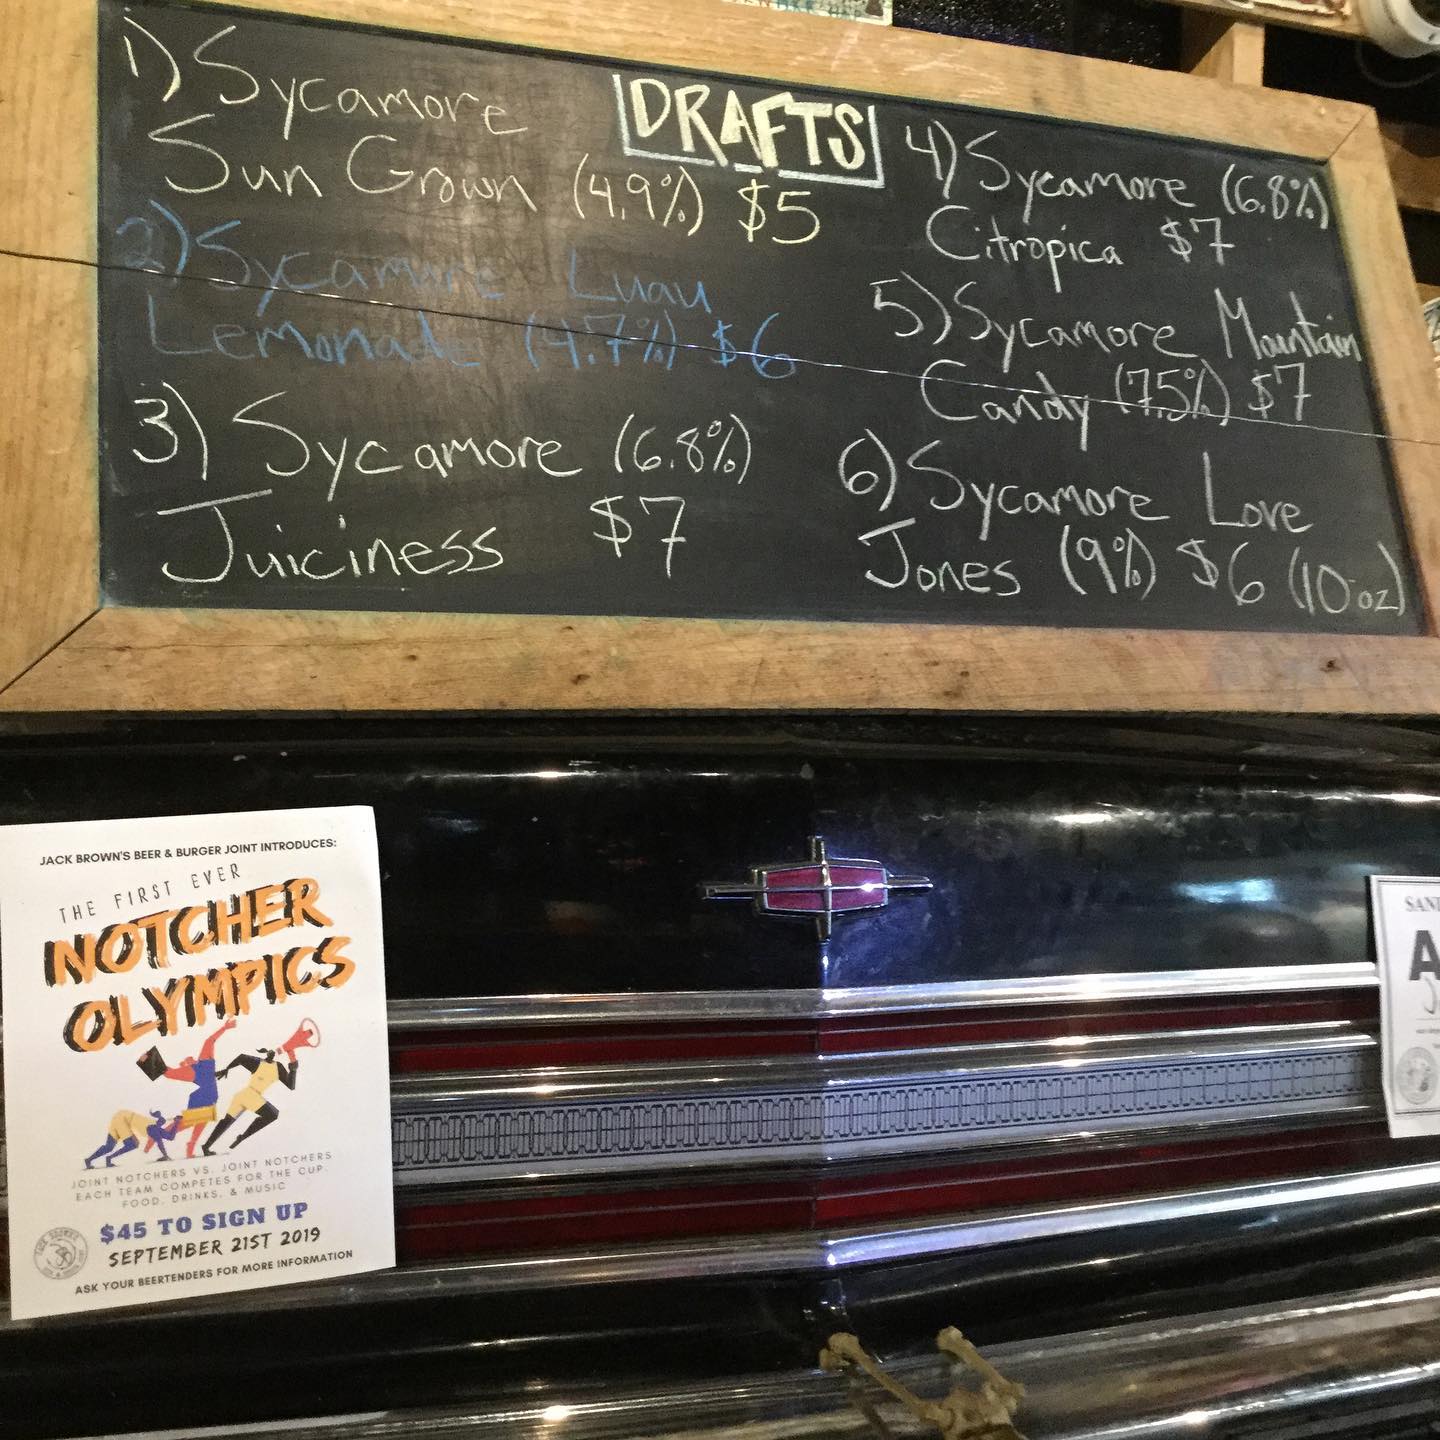 DRAFTS
1) Sycamore
Sun Grown (4.9%) $5
2) Sycamore Luau
Lemonade (4.7%) $6
3) Sycamore (6.8%)
Juiciness $7
4) Sycamore (6.8%)
Citropica $7
5) Sycamore Mountain
Candy (7.5%) $7
6) Sycamore Love
Jones (9%) $6 (10 oz)
JACK BROWN'S BEER & BURGER JOINT INTRODUCES:
THE FIRST EVER
NOTCHER
OLYMPICS
JOINT NOTCHERS VS. JOINT NOTCHERS
EACH TEAM COMPETES FOR THE CUP.
FOOD, DRINKS, & MUSIC
$45 TO SIGN UP
SEPTEMBER 21ST 2019
ASK YOUR BEERTENDERS FOR MORE INFORMATION